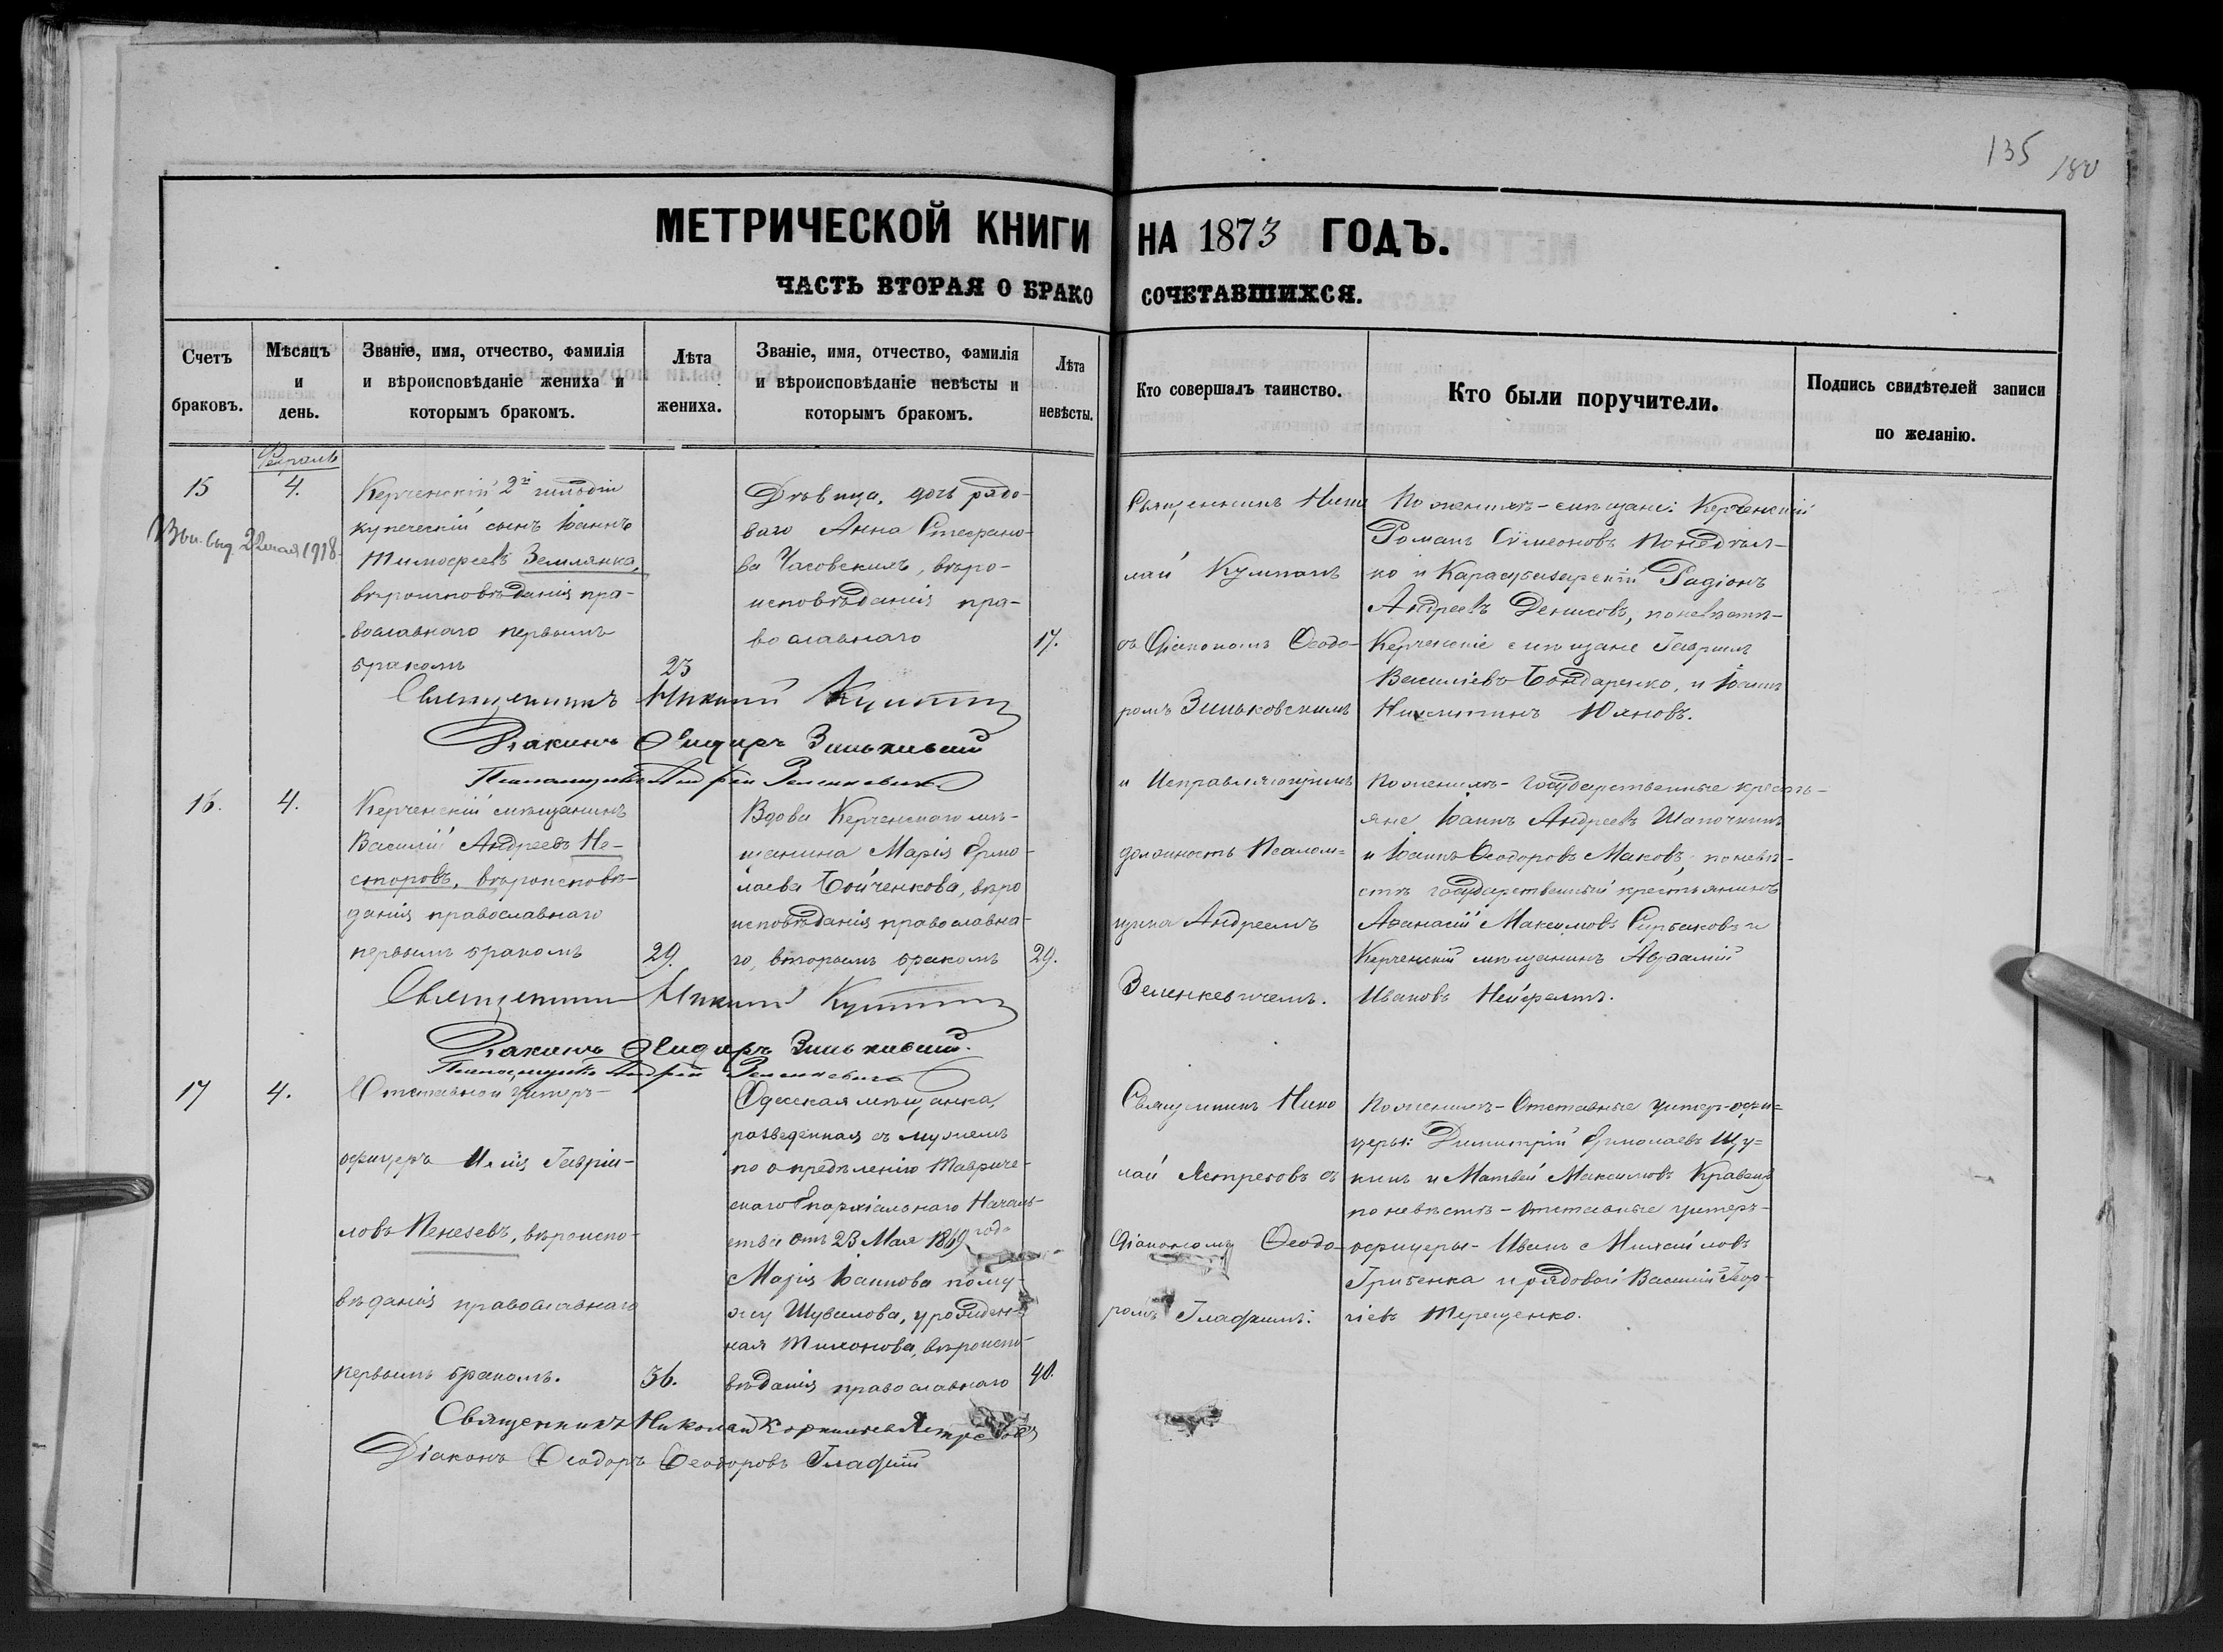 135 180
МЕТРИЧЕСКОЙ КНИГИ НА 1873 ГОДЪ.
ЧАСТЬ ВТОРАЯ О БРАКОСОЧЕТАВШИХСЯ.
Счетъ браковъ.
Мѣсяцъ и день.
Званіе, имя, отчество, фамилія
и вѣроисповѣданіе жениха и
которымъ бракомъ.
Лѣта жениха.
Званіе, имя, отчество, фамилія
и вѣроисповѣданіе невѣсты и
которымъ бракомъ.
Лѣта невѣсты.
Кто совершалъ таинство.
Кто были поручители.
Подпись свидѣтелей записи
по желанію.
Февраль
15
4.
22 мая 1918
Керченскій 2й гильдіи
купеческій сынъ Іоаннъ
Тимофеевъ Землянка,
вѣроисповѣданія пра-
вославнаго первымъ
бракомъ
23
Дѣвица, дочь рядо-
ваго Анна Стефано-
ва Часовскихъ, вѣро-
исповѣданія пра-
вославнаго
17.
Священникъ Нико
лай Кумпанъ
съ Діакономъ Ѳеодо-
ромъ Зиньковскимъ
и Исправляющимъ
должность Псалом=
щика Андреемъ
Зеленкевичемъ.
По женихѣ - мѣщане: Керченскій
Романъ Сѵмеоновъ Понедѣл-
ко и Карасубазарскій Радіонъ
Андреевъ Денисовъ, по невѣстѣ-
Керченскіе мѣщане Гавріилъ
Василіевъ Бондаренко, и Іоаннъ
Никитинъ Юяновъ.
Священникъ Николай Кумпанъ
Діаконъ Ѳеодоръ Зиньковскій
Псаломщикъ Андрей Зеленкевичъ
16.
4.
Керченскій мѣщанинъ
Василій Андреевъ Не-
сторовъ, вѣроисповѣ-
данія православнаго
первымъ бракомъ
29.
Вдова Керченскаго мѣ-
щанина Марія Ермо-
лаева Бойченкова, вѣро
исповѣданія православна-
го, вторымъ бракомъ
29.
По женихѣ - Государственные кресть-
яне Іоаннъ Андреевъ Шапочкинъ
и Іоаннъ Ѳеодоровъ Маковъ, по невѣ-
стѣ государственный крестьянинъ
Аѳанасій Максимовъ и
Керченскій мѣщанинъ Авраамій
Ивановъ
Священникъ Николай Кумпанъ
Діаконъ Ѳеодоръ Зиньковскій.
Псаломщикъ Андрей Зеленкевичъ
17
4.
Отставной унтеръ-
офицеръ Илія Гавріи-
ловъ Пенезевъ, вѣроиспо-
вѣданія православнаго
первымъ бракомъ.
36.
Одесская мѣщанка,
разведенная съ мужемъ
по опредѣленію Тавриче-
скаго Епархіальнаго Началь-
ства отъ 23 Мая 1869 года
Марія Іоаннова по му-
жу Шувалова, урожден-
ная Тихонова, вѣроиспо-
вѣданія православнаго
40.
Священникъ Нико
лай Ястребовъ съ
Діакономъ Ѳеодо-
ромъ Гладкимъ.
По женихѣ - Отставные унтер-офи=
церы: Димитрій Ермолаевъ Щу=
кинъ и Матвей Максимовъ Кравецъ
по невѣстѣ - отставные унтеръ-
офицеры - Иванъ Михайловъ
Грибенка и рядовой Василій Геор-
гіевъ Терещенко.
Священникъ Николай Корниліевъ Ястребовъ
Діаконъ Ѳеодоръ Ѳеодоровъ Гладкій